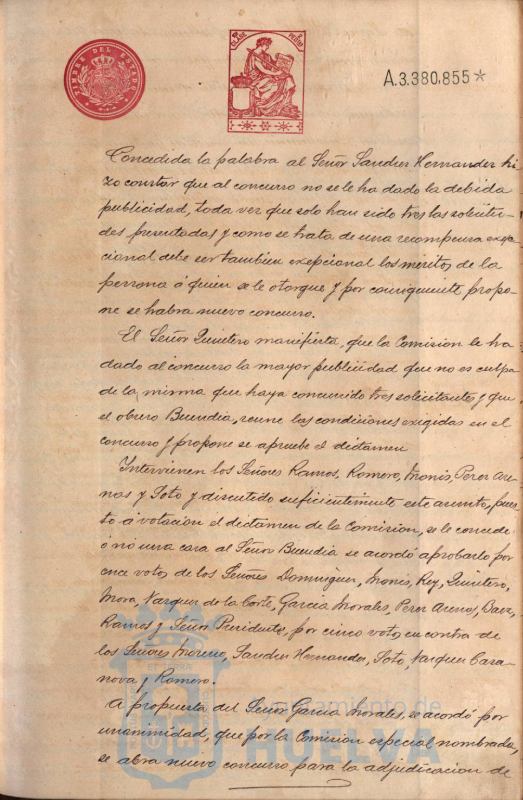 TIMBRE DEL ESTADO
CLASE
A.3.380.855*
Concedida la palabra al Señor Sanches Hernandez hi
zo constar que al concurso no se le ha dado la debida
publicidad, toda vez que solo han sido tres las solicitu-
des presentadas y como se trata de una recompensa exep
cional debe ser tambien exepcional los meritos de la
persona á quien se le otorgue y por consiguiente propo-
ne se habra nuevo concurso.
El Señor Quintero manifiesta, que la Comision le ha
dado al concurso la mayor publicidad que no es culpa
de la misma que haya concurrido tres solicitantes y que
el obrero Buendia, reune las condiciones exigidas en el
concurso y propone se apruebe el dictamen
Intervienen los Señores Ramos, Romero, Monís, Perez Are
nas y Soto y discutido suficientemente este asunto, pues
to á votacion el dictamen de la Comision, se le concede
ó no una casa al Señor Buendia se acordó aprobarlo por
once votos de los Señores Dominguez, Monis, Rey, Quintero,
Mora, Vazquez de la Corte, Garcia Morales, Perez Arenas, Baez,
Ramos y Señor Presidente, por cinco votos en contra de
los Señores Moreno, Sanches Hernandez, Soto, Vazquez Casa
nova y Romero.
A propuesta del Señor Garcia Morales, se acordó por
unanimidad, que por la Comision especial nombrada,
se abra nuevo concurso para la adjudicacion de
Ayuntamiento de
HUELVA